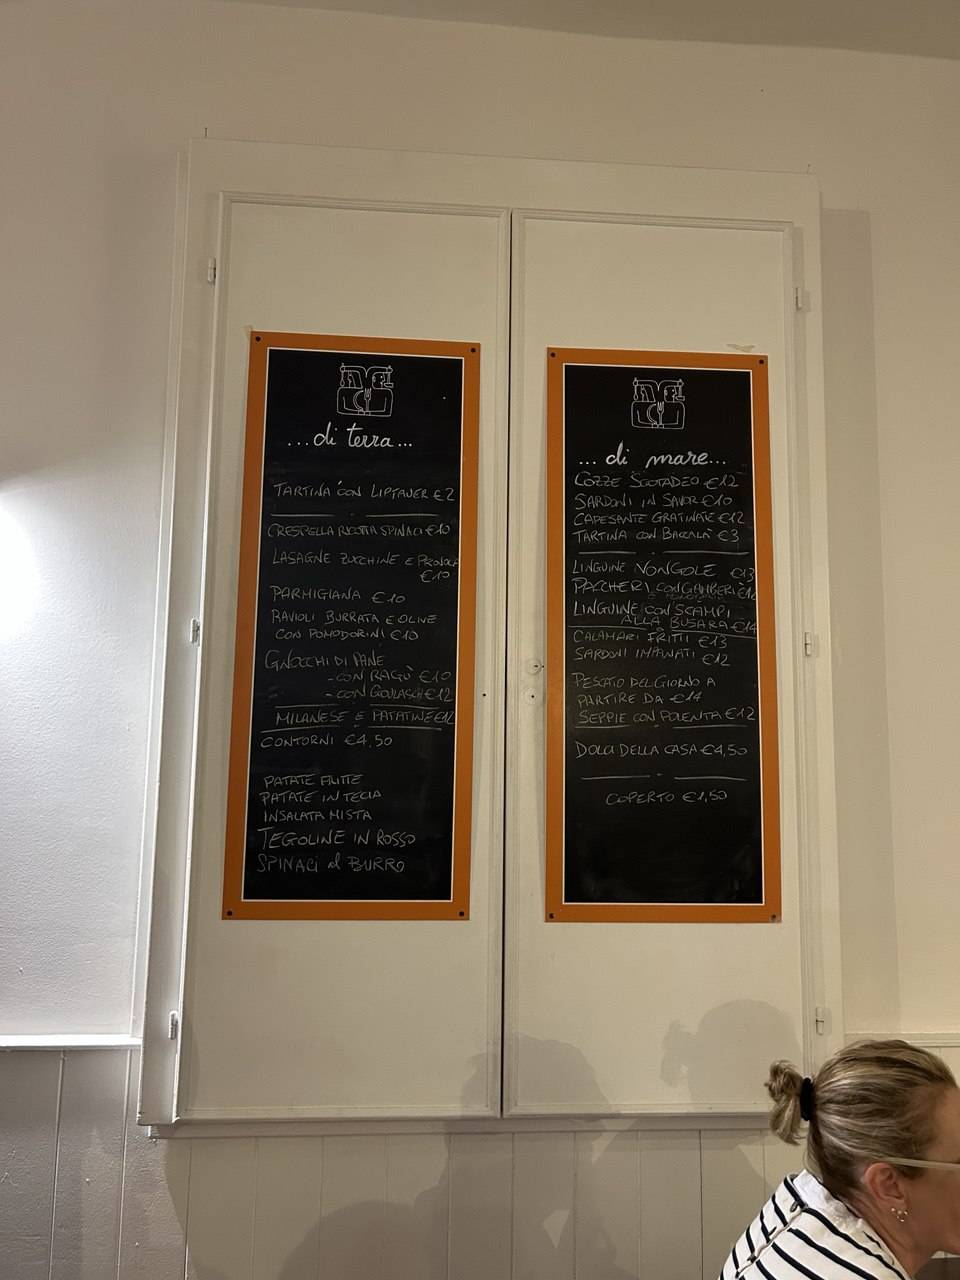 ...di terra...
TARTINA CON LIPTAUER €2
CRESPELLA RICOTTA SPINACI €10
LASAGNE ZUCCHINE E PROVOLA
€10
PARMIGIANA €10
RAVIOLI BURRATA E OLIVE
CON POMODORINI €10
GNOCCHI DI PANE
- CON RAGÙ €10
- CON GOULASCH €12
MILANESE E PATATINE €12
CONTORNI €4,50
PATATE FRITTE
PATATE IN TECIA
INSALATA MISTA
TEGOLINE IN ROSSO
SPINACI al BURRO
... di mare...
COZZE SCOTADEO €12
SARDONI IN SAVOR €10
CAPESANTE GRATINATE €12
TARTINA CON BACCALÀ €3
LINGUINE VONGOLE €13
PACCHERI CON GAMBERI €12
LINGUINE CON SCAMPI
ALLA BUSARA €14
CALAMARI FRITTI €13
SARDONI IMPANATI €12
PESCATO DEL GIORNO A
PARTIRE DA €14
SEPPIE CON POLENTA €12
DOLCI DELLA CASA €4,50
COPERTO €1,50